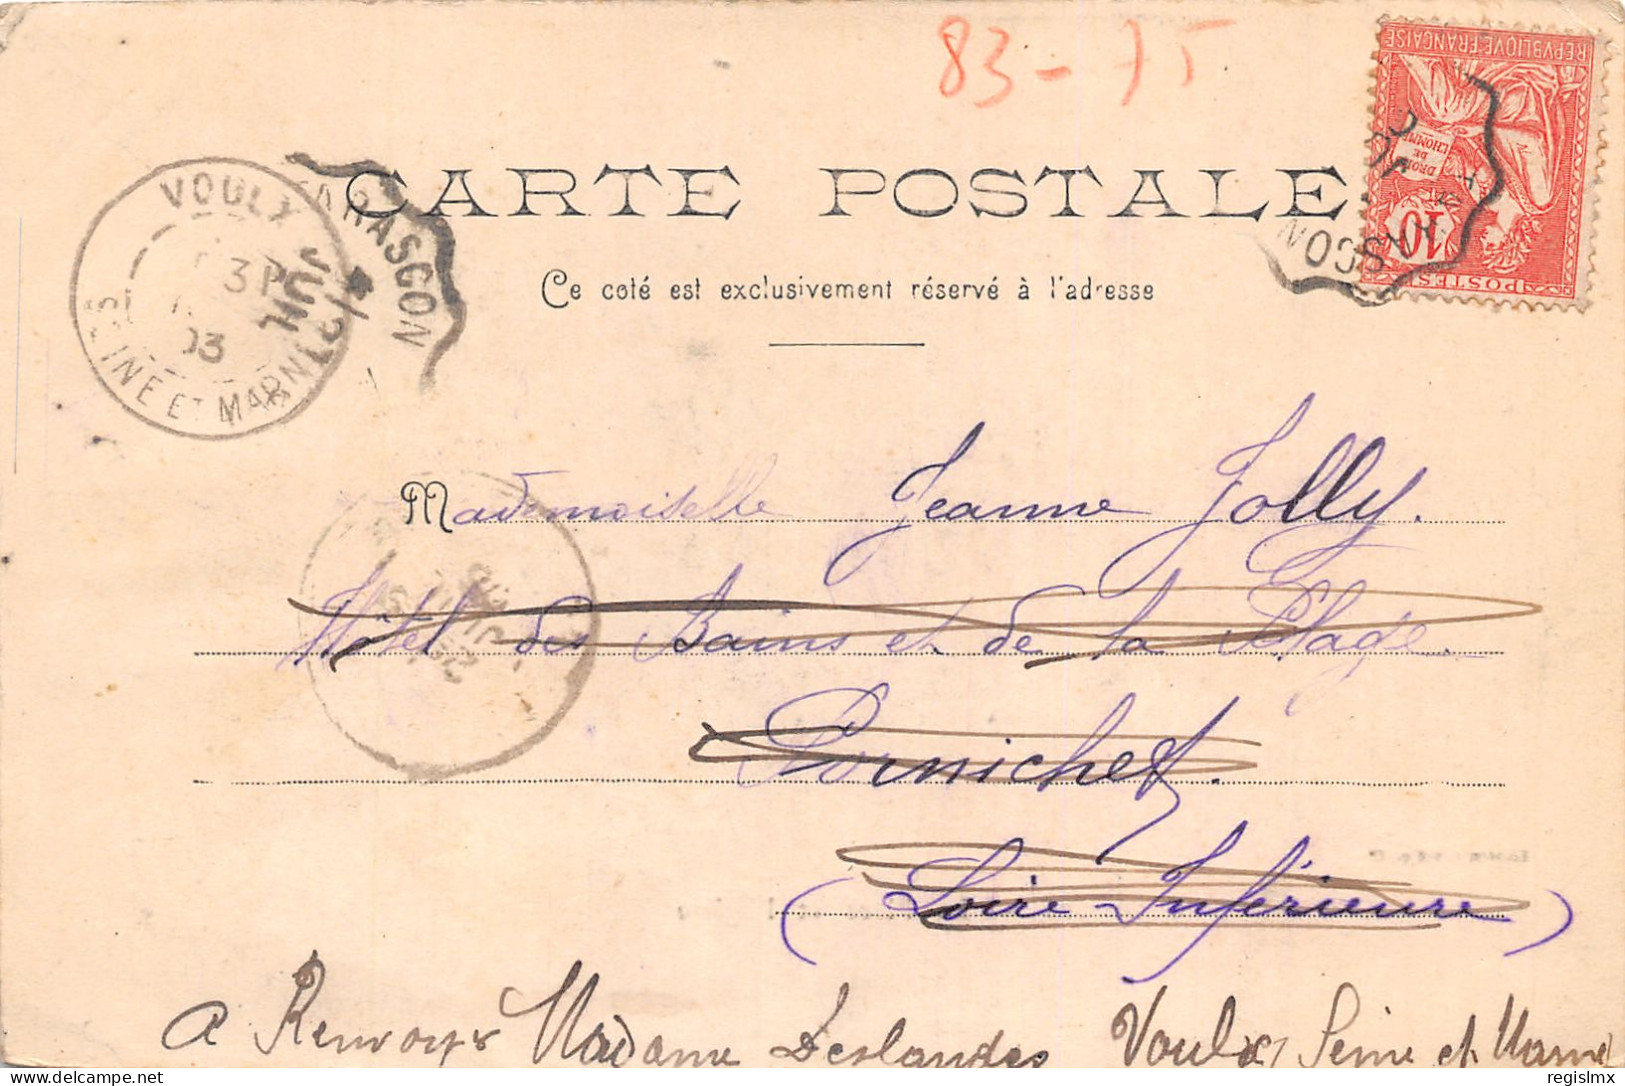 83-75
REPVBLIQVE FRANÇAISE
DROITS
DE
L'HOMME
10
POSTES
TARASCON
VOULX
3
JUIL
03
SEINE ET MARNE
CARTE POSTALE
Ce coté est exclusivement réservé à l'adresse
Mademoiselle Jeanne Jolly.
Hôtel des Bains et de la Plage.
Pornichet.
(Loire Inférieure)
a Renvoyer Madame Deslandes Voulx Seine et Marne
delcampe.net
regislmx